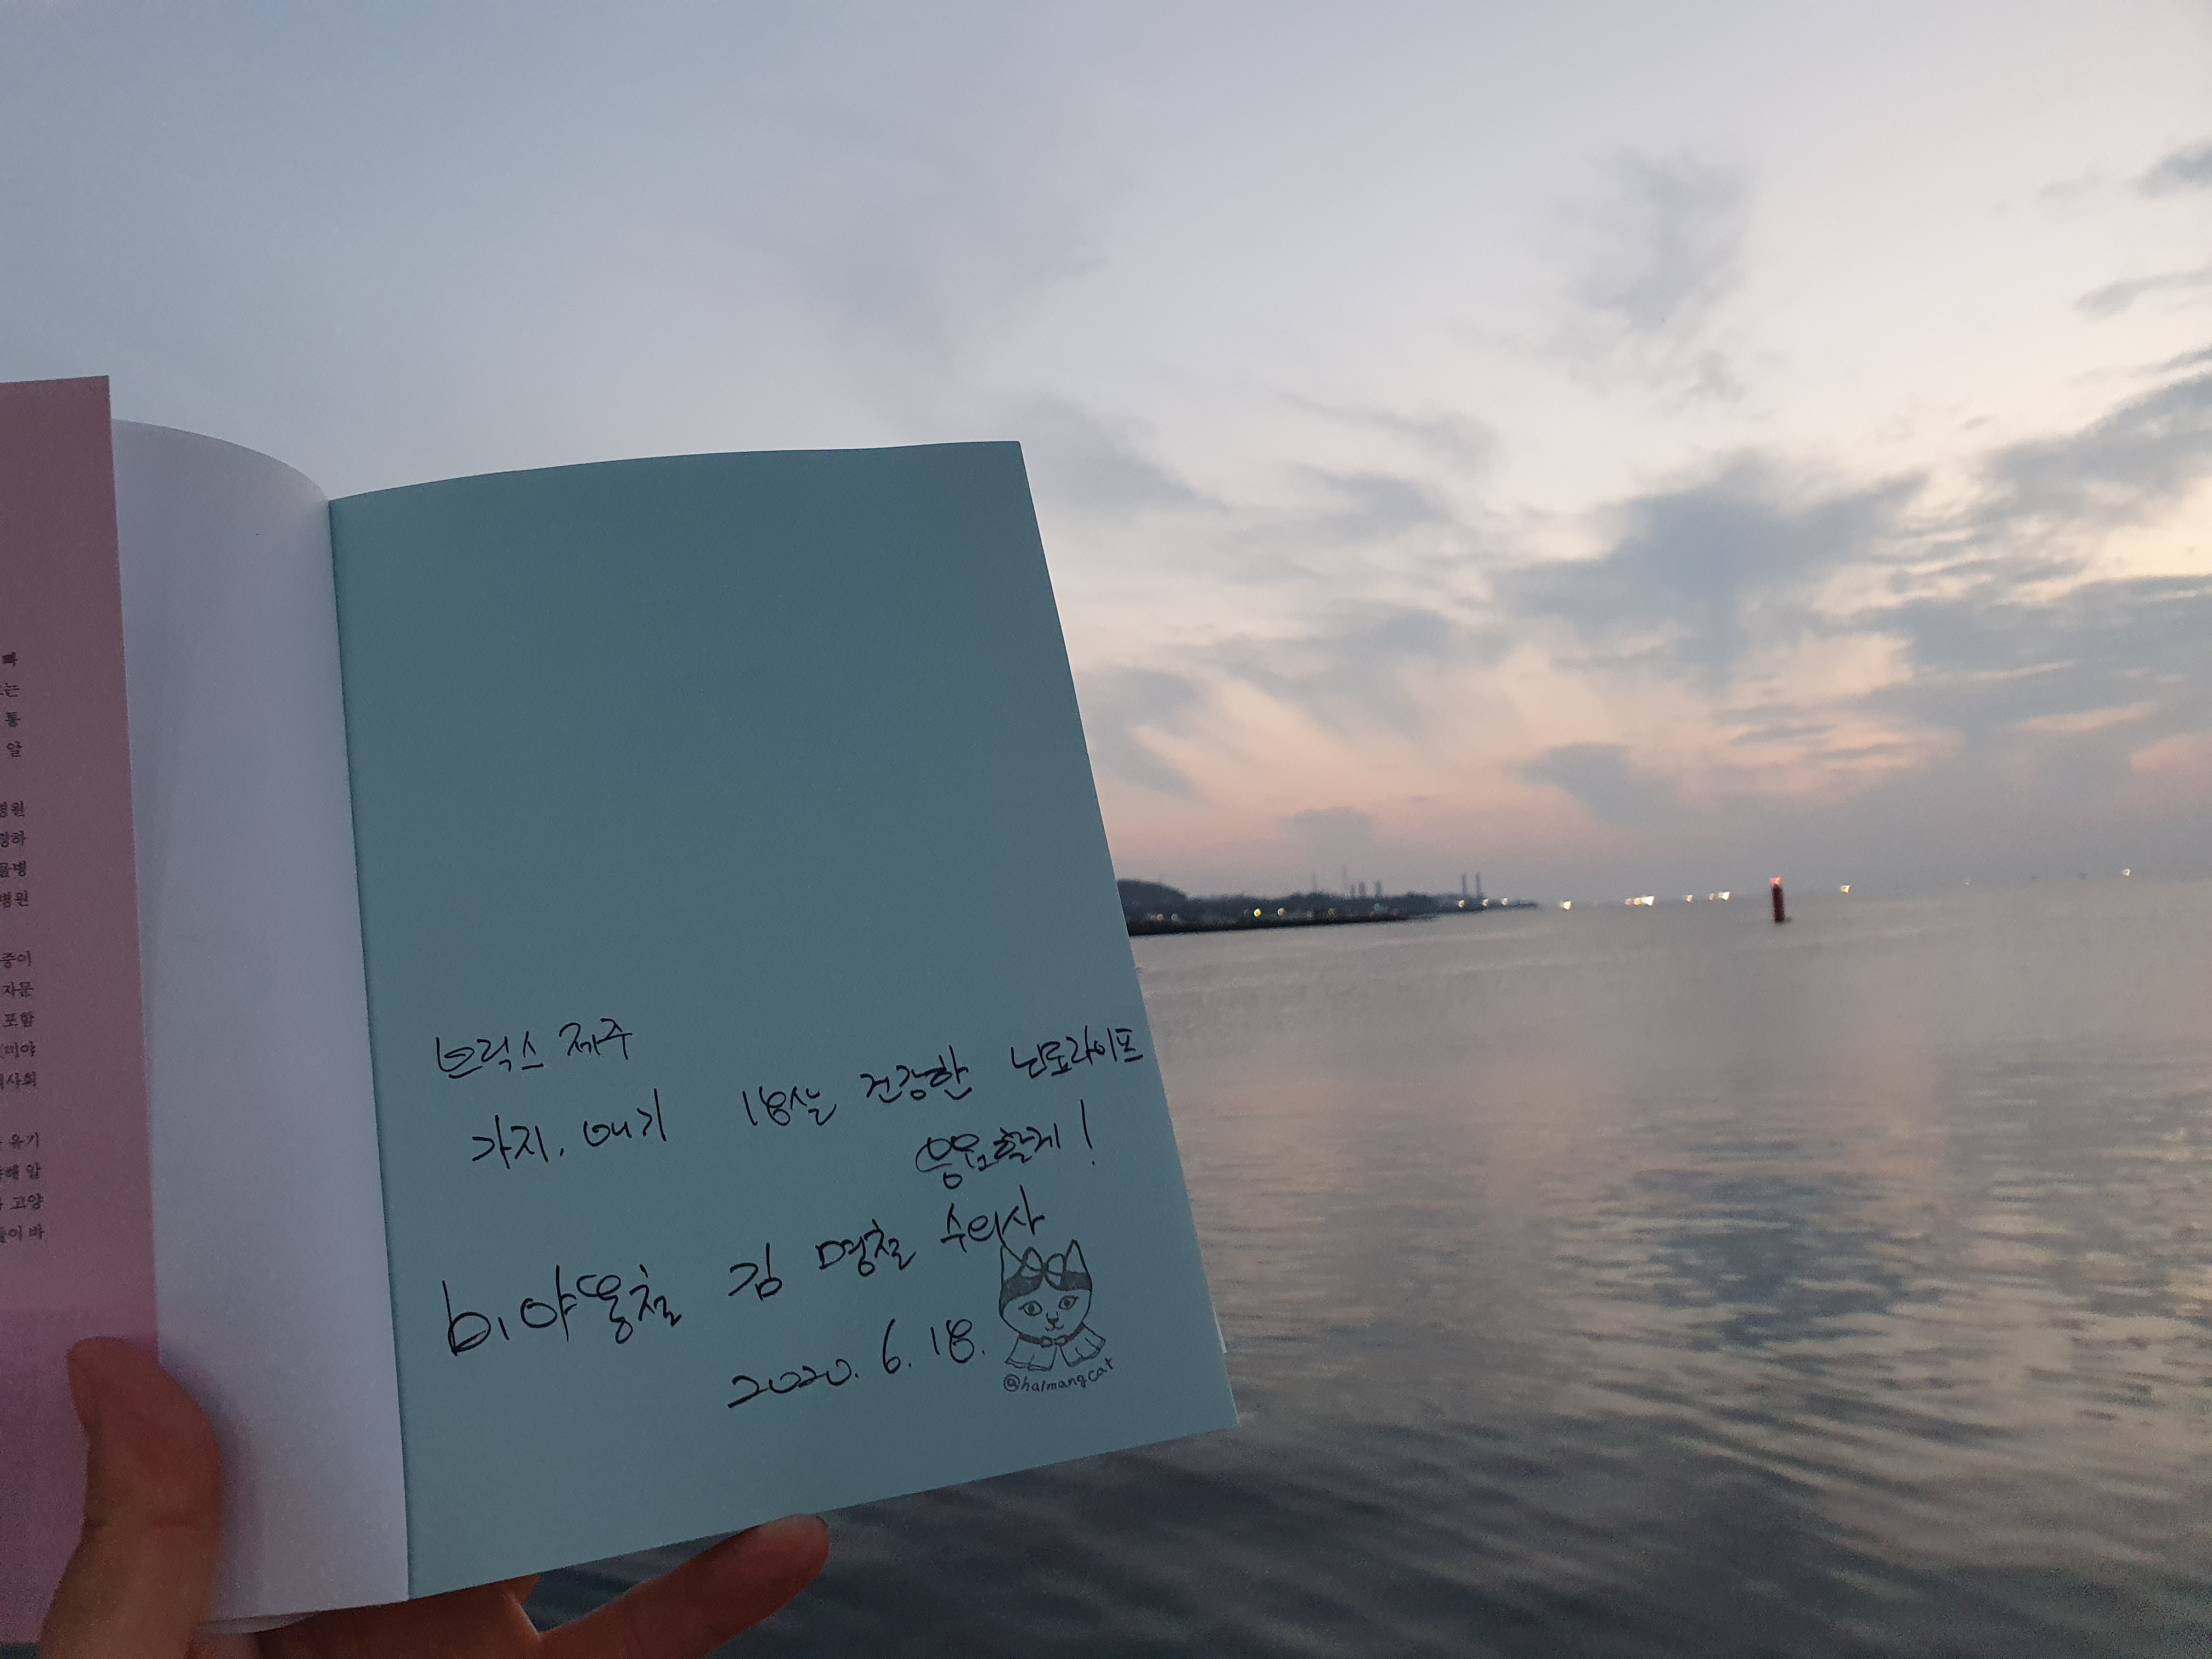 빠
는
통
알
병원
령하
물병
병원
중이
자문
포함
(미야
사회
유기
해 앞
고양
들이 바
브릭스 제주
가지, 애기 18살 건강한 난로라이프
응원할게!
by. 야옹철 김명철 수의사
2020. 6. 18.
@halmangcat